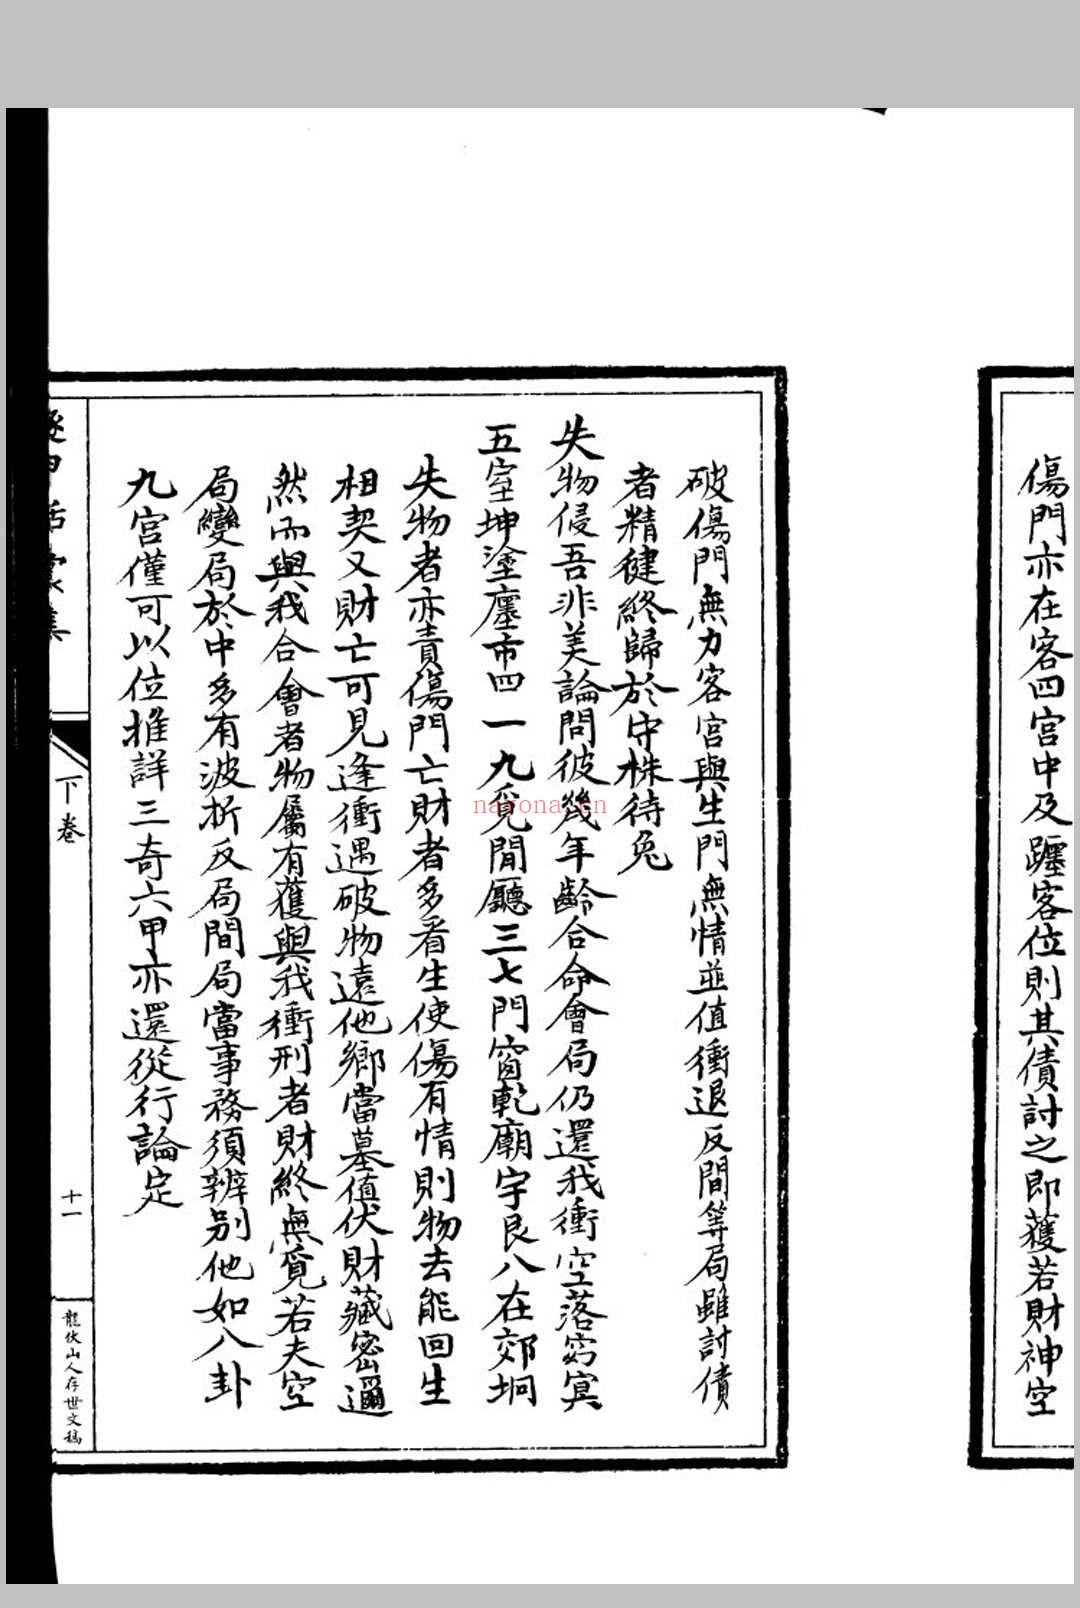 傷門亦在客四宮中及躔客位則其債討之即獲若財神空
破傷門無力客宮與生門無情並值衝退反間等局雖討債
者精健終歸於守株待兔
失物侵吾非美論問彼幾年齡合命會局仍還我衝空落窮冥
五室坤塗廛市四一九覓閒廳三七門窗乾廟宇艮八在郊坰
失物者亦責傷門亡財者多看生使傷有情則物去能回生
相契又財亡可見逢衝遇破物遠他鄉當墓值伏財藏密邇
然而與我合會者物屬有獲與我衝刑者財終無覓若夫空
局變局於中多有波折反局間局當事務須辨别他如八卦
九宮僅可以位推詳三奇六甲亦還從行論定
下卷
十一
龍伏山人存世文稿
nayona.cn